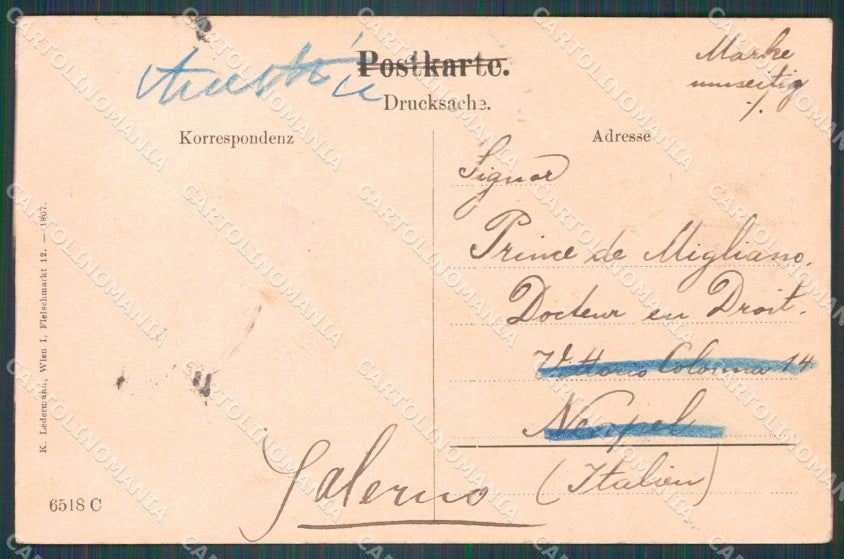 Postkarte.
Drucksache.
Marke
umseitig
./.
Korrespondenz
Adresse
Signor
Prince de Migliano.
Docteur en Droit.
Vittoria Colonna 14
Neapel
(Italien)
Salerno
K. Ledermann, Wien I, Fleischmarkt 12. — 1907.
6518 C
CARTOLINOMANIA